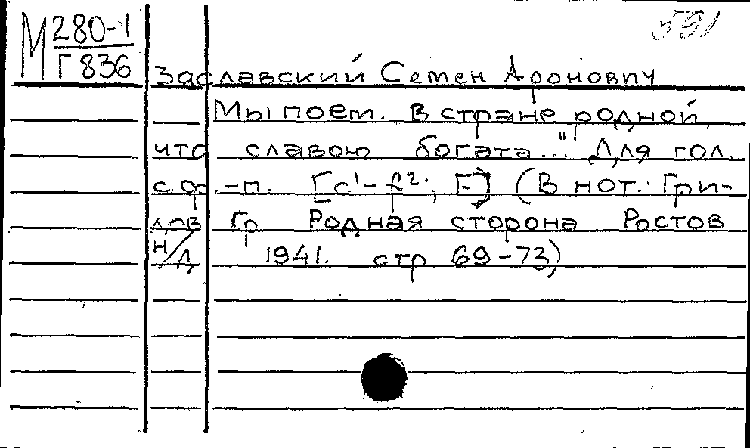 М 280-1
Г 836
591
Заславский Семен Аронович
Мы поем. В стране родной,
что славою богата..." Для гол.
с ф-п. [c¹-f²; F] (В нот.: Гри-
дов Гр Родная сторона Ростов
н/Д 1941. стр 69-73)